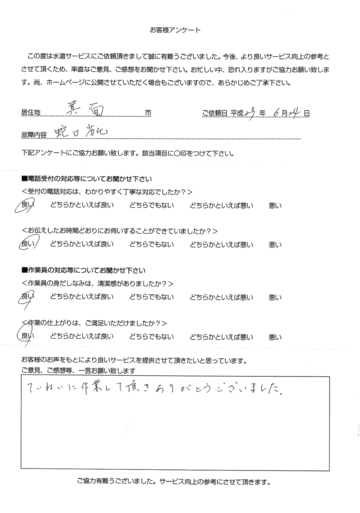 お客様アンケート
この度は水道サービスにご依頼頂きまして誠に有難うございました。今後、より良いサービス向上の参考と
させて頂くため、率直なご意見、ご感想をお聞かせ下さい。お忙しい中、恐れ入りますがご協力お願い致しま
す。尚、ホームページに公開させていただく場合もございますので、あらかじめご了承下さい。
居住地 箕面 市 ご依頼日 平成23年 6月24日
故障内容 蛇口劣化
下記アンケートにご協力お願い致します。該当項目に〇印をつけて下さい。
■電話受付の対応等についてお聞かせ下さい
<受付の電話対応は、わかりやすく丁寧な対応でしたか?>
良い どちらかといえば良い どちらでもない どちらかといえば悪い 悪い
<お伝えしたお時間どおりにお伺いすることができていましたか?>
良い どちらかといえば良い どちらでもない どちらかといえば悪い 悪い
■作業員の対応等についてお聞かせ下さい
<作業員の身だしなみは、清潔感がありましたか?>
良い どちらかといえば良い どちらでもない どちらかといえば悪い 悪い
<作業の仕上がりは、ご満足いただけましたか?>
良い どちらかといえば良い どちらでもない どちらかといえば悪い 悪い
お客様のお声をもとにより良いサービスを提供させて頂きたいと思っています。
ご意見、ご感想等、一言お願い致します
ていねいに作業して頂きありがとうございました。
ご協力有難うございました。サービス向上の参考にさせて頂きます。